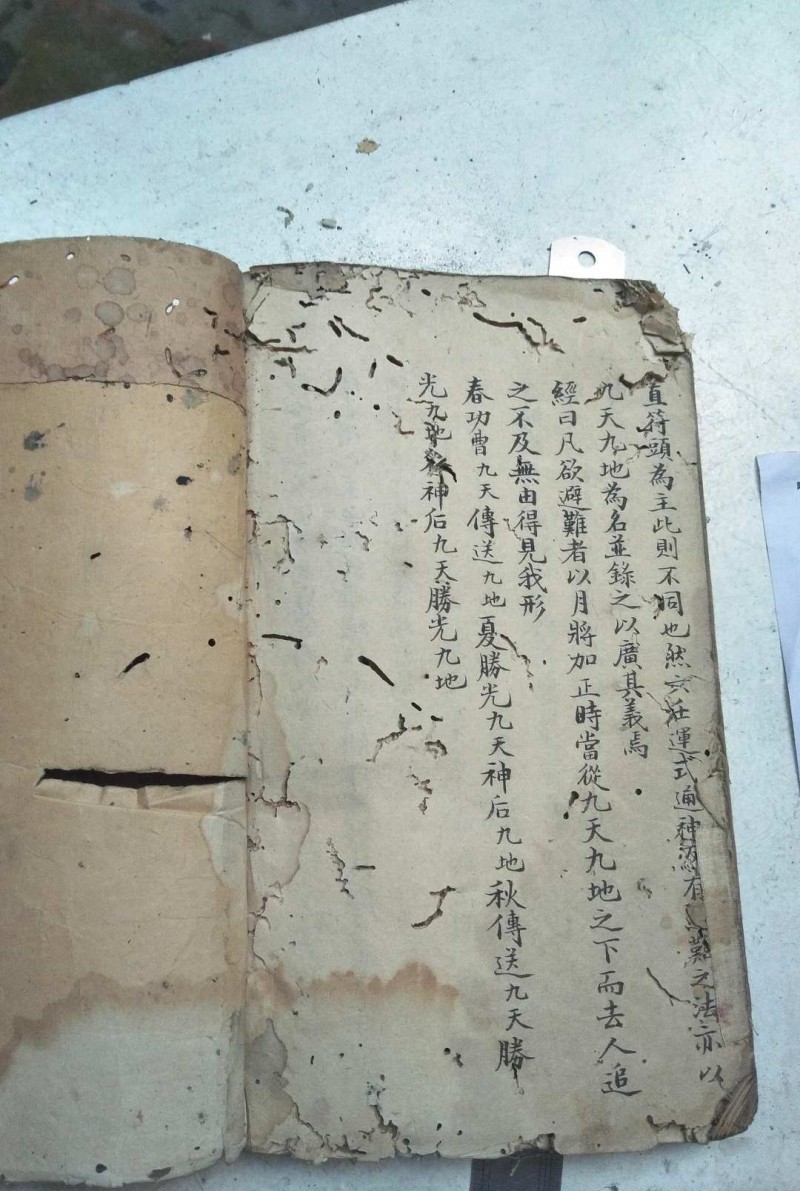 直符頭為主此則不同也然六壬運式通神有難之法亦以
九天九地為名並錄之以廣其義焉
經曰凡欲避難者以月將加正時當從九天九地之下而去人追
之不及無由得見我形
春功曹九天傳送九地夏勝光九天神后九地秋傳送九天勝
光九地神后九天勝光九地